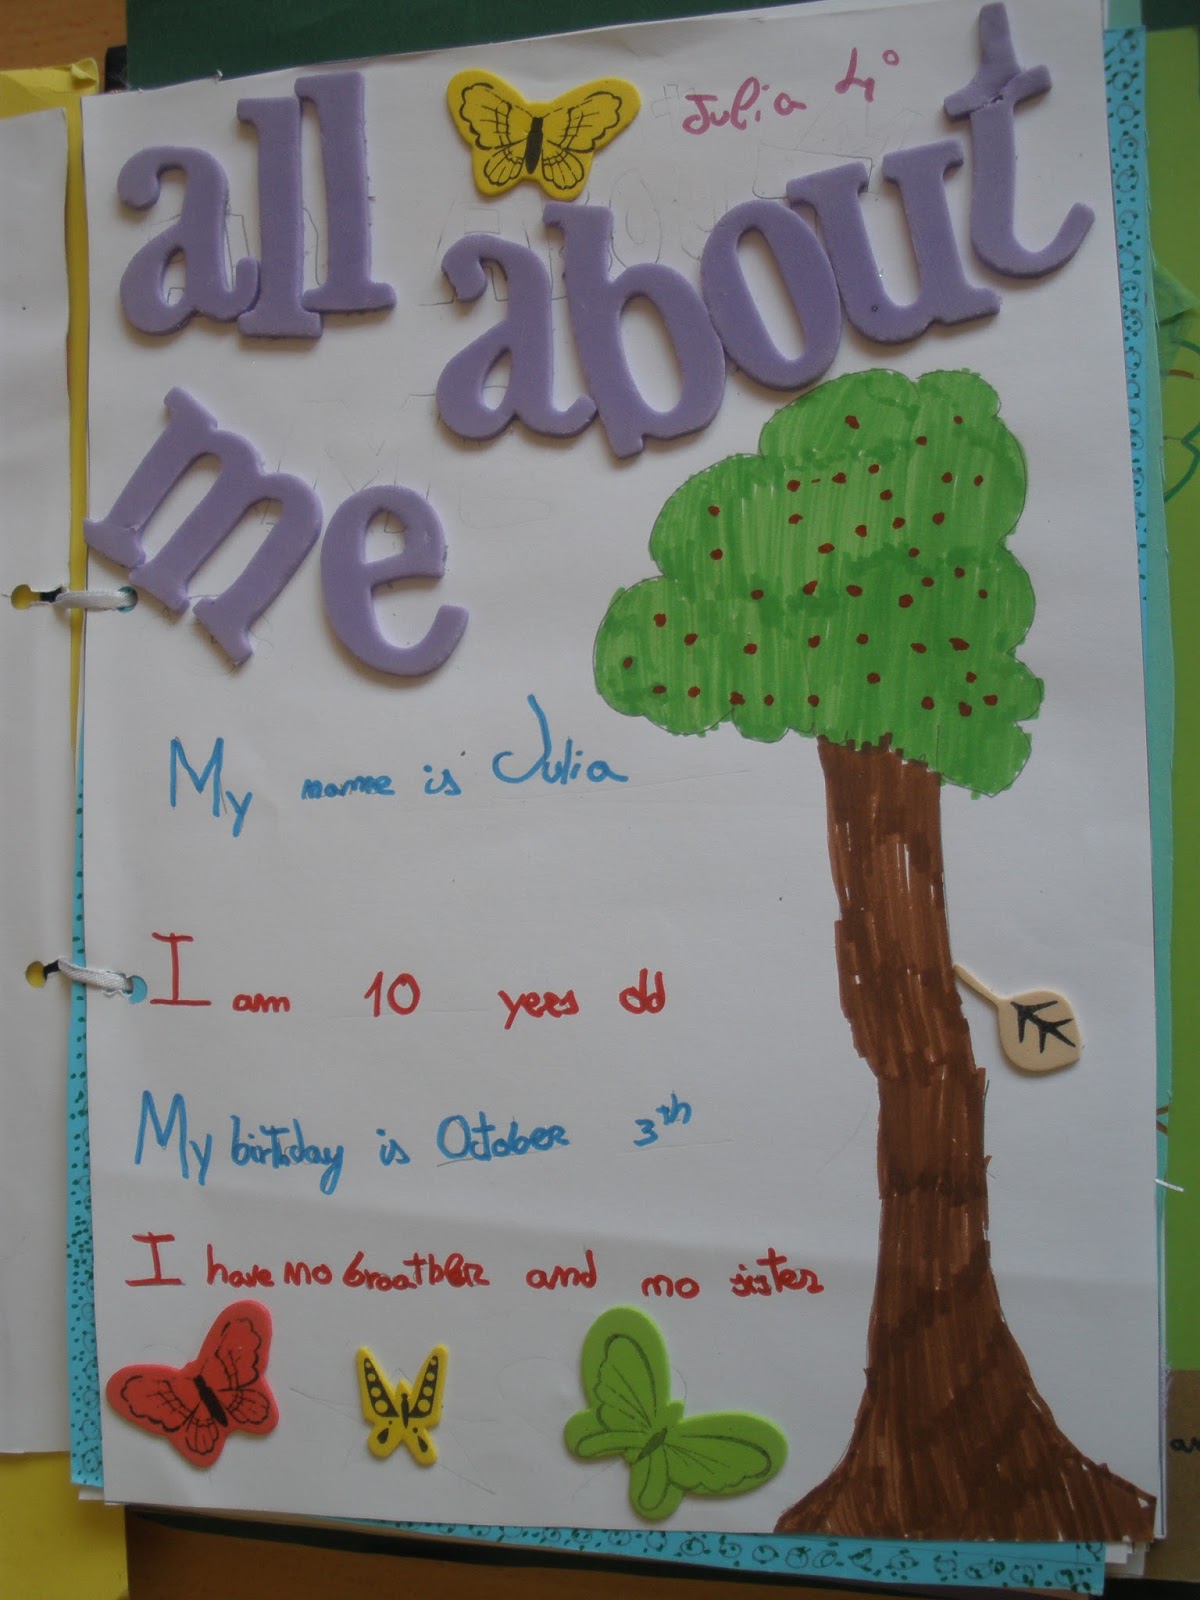 Julia 4º
all about
me
My name is Julia
I am 10 yers old
My birthday is October 3th
I have no broatbler and no sister